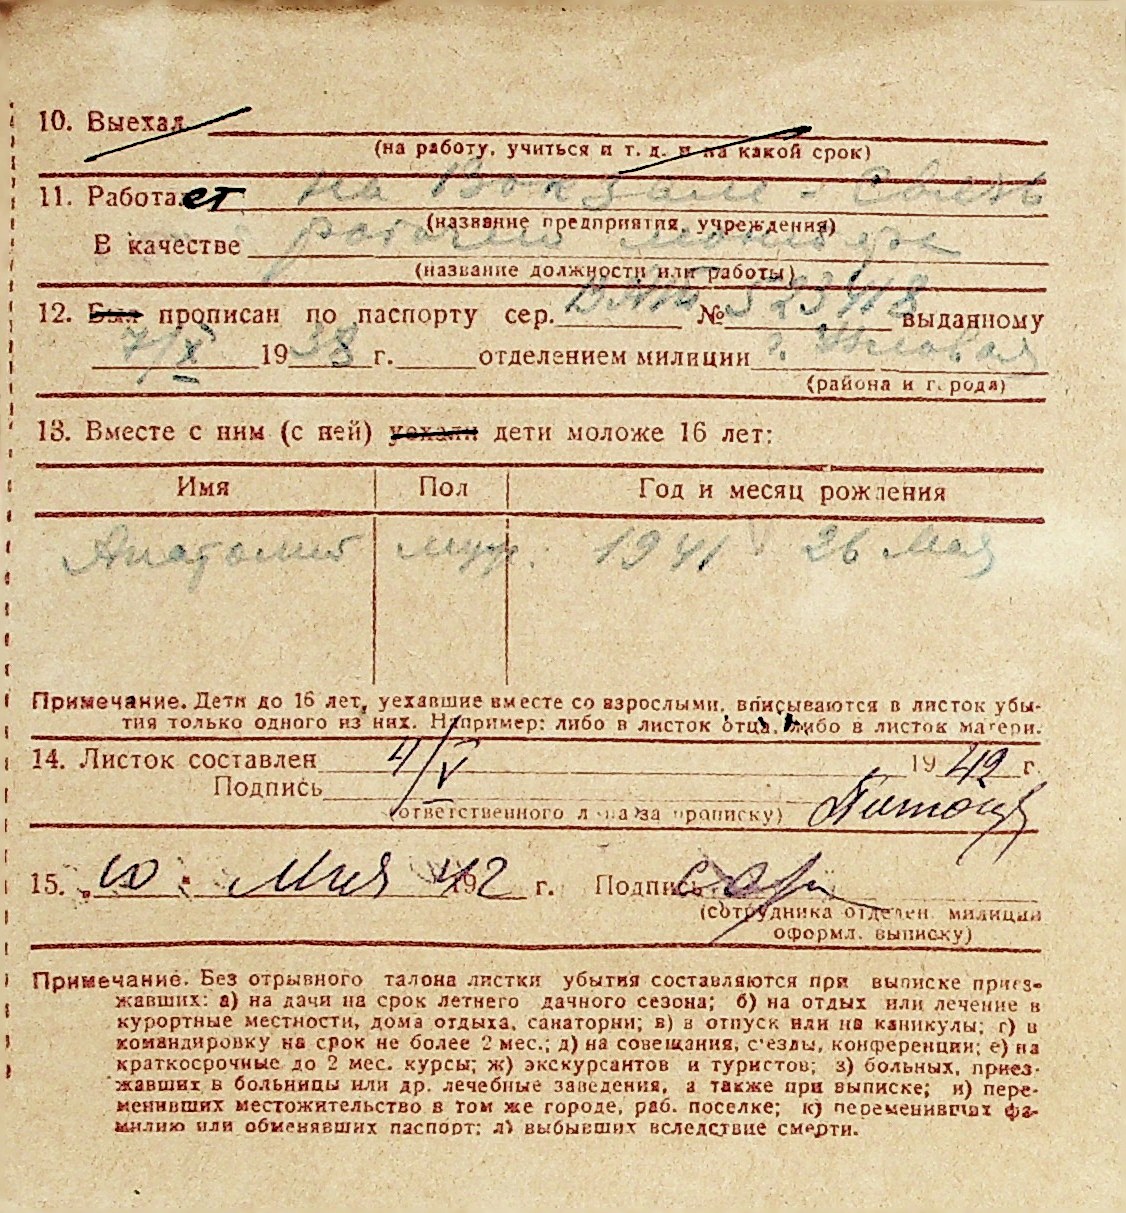 10. Выехал
(на работу, учиться и т. д. и на какой срок)
11. Работает на Вокзале - связь
(название предприятия, учреждения)
В качестве рабочий монтёр
(название должности или работы)
12. Был прописан по паспорту сер. № 523418 выданному
7/X 1938 г. отделением милиции г. Узловая
(района и города)
13. Вместе с ним (с ней) уехали дети моложе 16 лет:
Имя Пол Год и месяц рождения
Анатолий муж. 1941 26 Мая
Примечание. Дети до 16 лет, уехавшие вместе со взрослыми, вписываются в листок убы-
тия только одного из них. Например: либо в листок отца, либо в листок матери.
14. Листок составлен 4/V 1942 г.
Подпись
(ответственного лица за прописку)
15. „10" Мая 1942 г. Подпись
(сотрудника отделен. милиции
оформл. выписку)
Примечание. Без отрывного талона листки убытия составляются при выписке приез-
жавших: а) на дачи на срок летнего дачного сезона; б) на отдых или лечение в
курортные местности, дома отдыха, санатории; в) в отпуск или на каникулы; г) в
командировку на срок не более 2 мес.; д) на совещания, с'езды, конференции; е) на
краткосрочные до 2 мес. курсы; ж) экскурсантов и туристов; з) больных, приез-
жавших в больницы или др. лечебные заведения, а также при выписке; и) пере-
менивших местожительство в том же городе, раб. поселке; к) переменивших фа-
милию или обменявших паспорт; л) выбывших вследствие смерти.